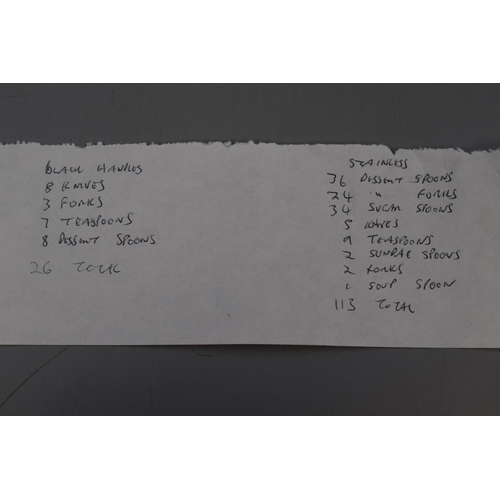 BLACK HANDLES
8 KNIVES
3 FORKS
7 TEASPOONS
8 DESSERT SPOONS
26 TOTAL
STAINLESS
36 DESSERT SPOONS
24 " FORKS
34 SUGAR SPOONS
5 KNIVES
9 TEASPOONS
2 SUNDAE SPOONS
2 FORKS
1 SOUP SPOON
113 TOTAL